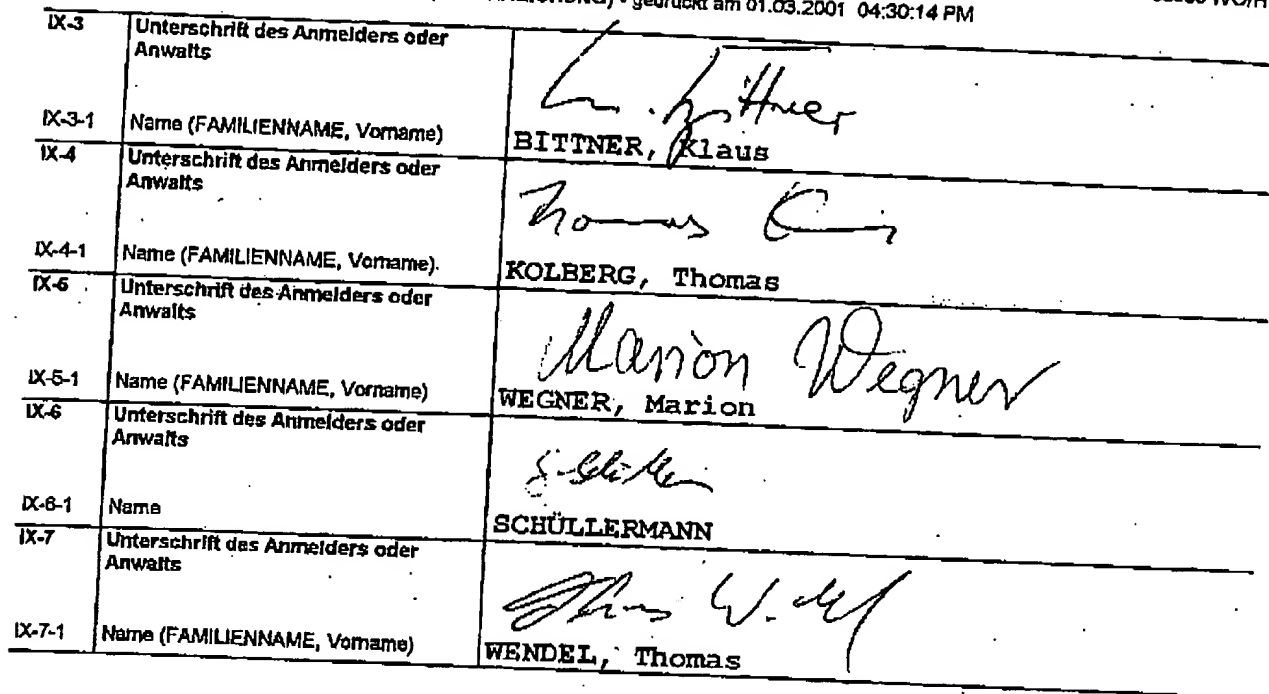 gedruckt am 01.03.2001 04:30:14 PM
IX-3 Unterschrift des Anmelders oder
Anwalts
IX-3-1 Name (FAMILIENNAME, Vorname)
BITTNER, Klaus
IX-4 Unterschrift des Anmelders oder
Anwalts
Thomas
IX-4-1 Name (FAMILIENNAME, Vorname).
KOLBERG, Thomas
IX-5 Unterschrift des Anmelders oder
Anwalts
Marion Wegner
IX-5-1 Name (FAMILIENNAME, Vorname)
WEGNER, Marion
IX-6 Unterschrift des Anmelders oder
Anwalts
IX-6-1 Name
SCHÜLLERMANN
IX-7 Unterschrift des Anmelders oder
Anwalts
IX-7-1 Name (FAMILIENNAME, Vorname)
WENDEL, Thomas